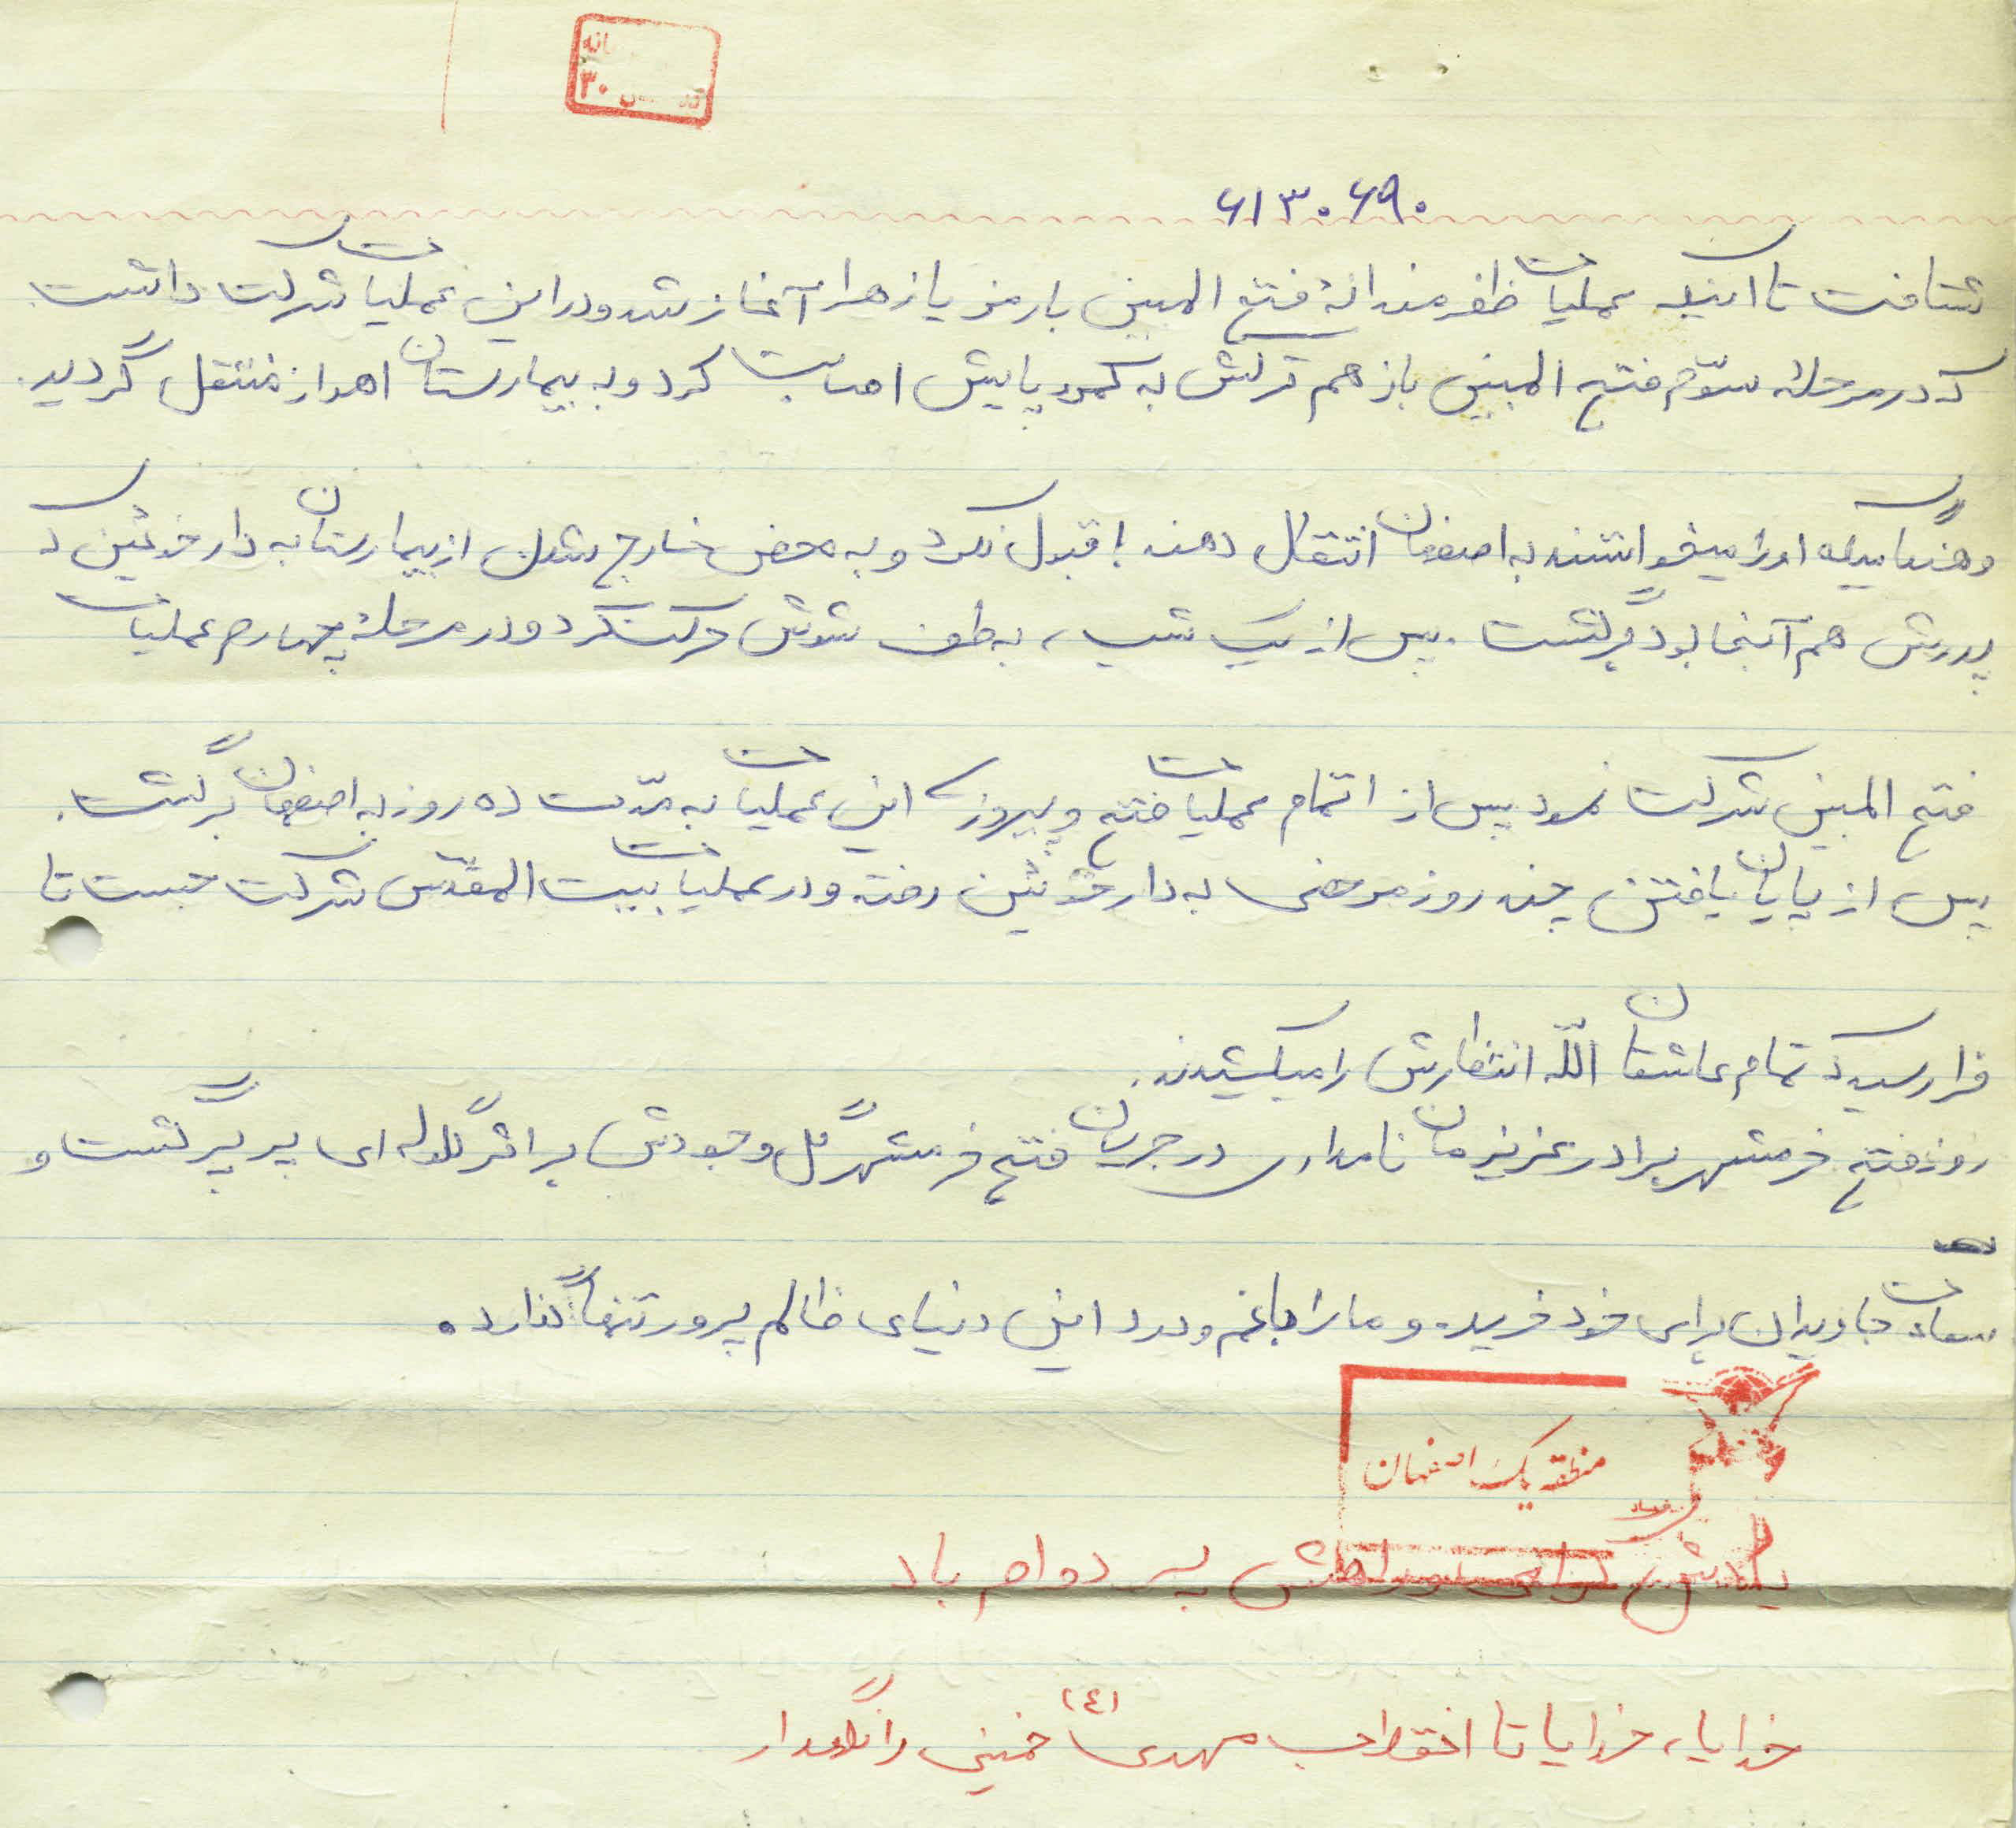 انه
۳۰
۶۱۳۰۶۹۰
شتافت تا اینکه عملیات ظفرمندانهٔ فتح المبین با رمز یا زهرا آغاز شد و در این عملیات شرکت داشت.
که در مرحلهٔ سوّم فتح المبین باز هم ترکش به کمر و پایش اصابت کرد و به بیمارستان اهواز منتقل گردید.
و هنگامیکه او را میخواستند به اصفهان انتقال دهند! قبول نکرد و به محض خارج شدن از بیمارستان به دارخوئین که
پدرش هم آنجا بود برگشت. پس از یک شب، به طرف شوش حرکت کرد و در مرحلهٔ چهارم عملیات
فتح المبین شرکت نمود پس از اتمام عملیات فتح و پیروزی این عملیات به مدّت ده روز به اصفهان برگشت.
پس از پایان یافتن چند روز مرخصی به دارخوئین رفته و در عملیات بیت المقدّس شرکت جست تا
فرا رسید که تمام عاشقان اللّه انتظارش را میکشیدند.
روز فتح خرمشهر برادر عزیزمان نامداری در جریان فتح خرمشهر گل وجودش بر اثر گلوله ای پرپر گشت و
سعادت جاویدان برای خود خرید. و ما را با غم و درد این دنیای ظالم پرور تنها گذارد.
منطقه یک اصفهان
یادش گرامی و راهش پر دوام باد
خدایا، خدایا تا انقلاب مهدی (ع) خمینی را نگهدار